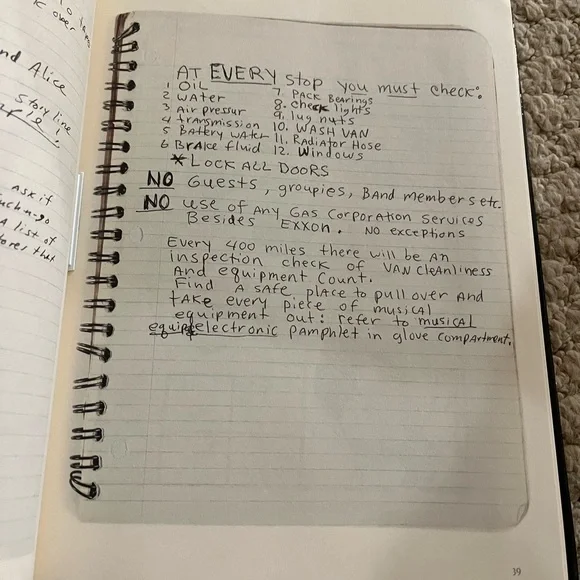 k over
nd Alice
Story line
Ask if
A list of
that
AT EVERY stop you must check:
1 OIL
2 water
3 Air pressur
4 transmission
5 Battery water
6 Brake fluid
7. PACK Bearings
8. check lights
9. lug nuts
10. WASH VAN
11. Radiator Hose
12. Windows
* LOCK ALL DOORS
NO Guests, groupies, BAnd members etc.
NO use of Any GAS Corporation Services
Besides EXXON. NO exceptions
Every 400 miles there will be An
inspection check of VAN cleanliness
And equipment Count.
Find A SAfe place to pull over And
tAKE every piece of musical
equipment out: refer to musical
electronic pamphlet in glove compartment.
39